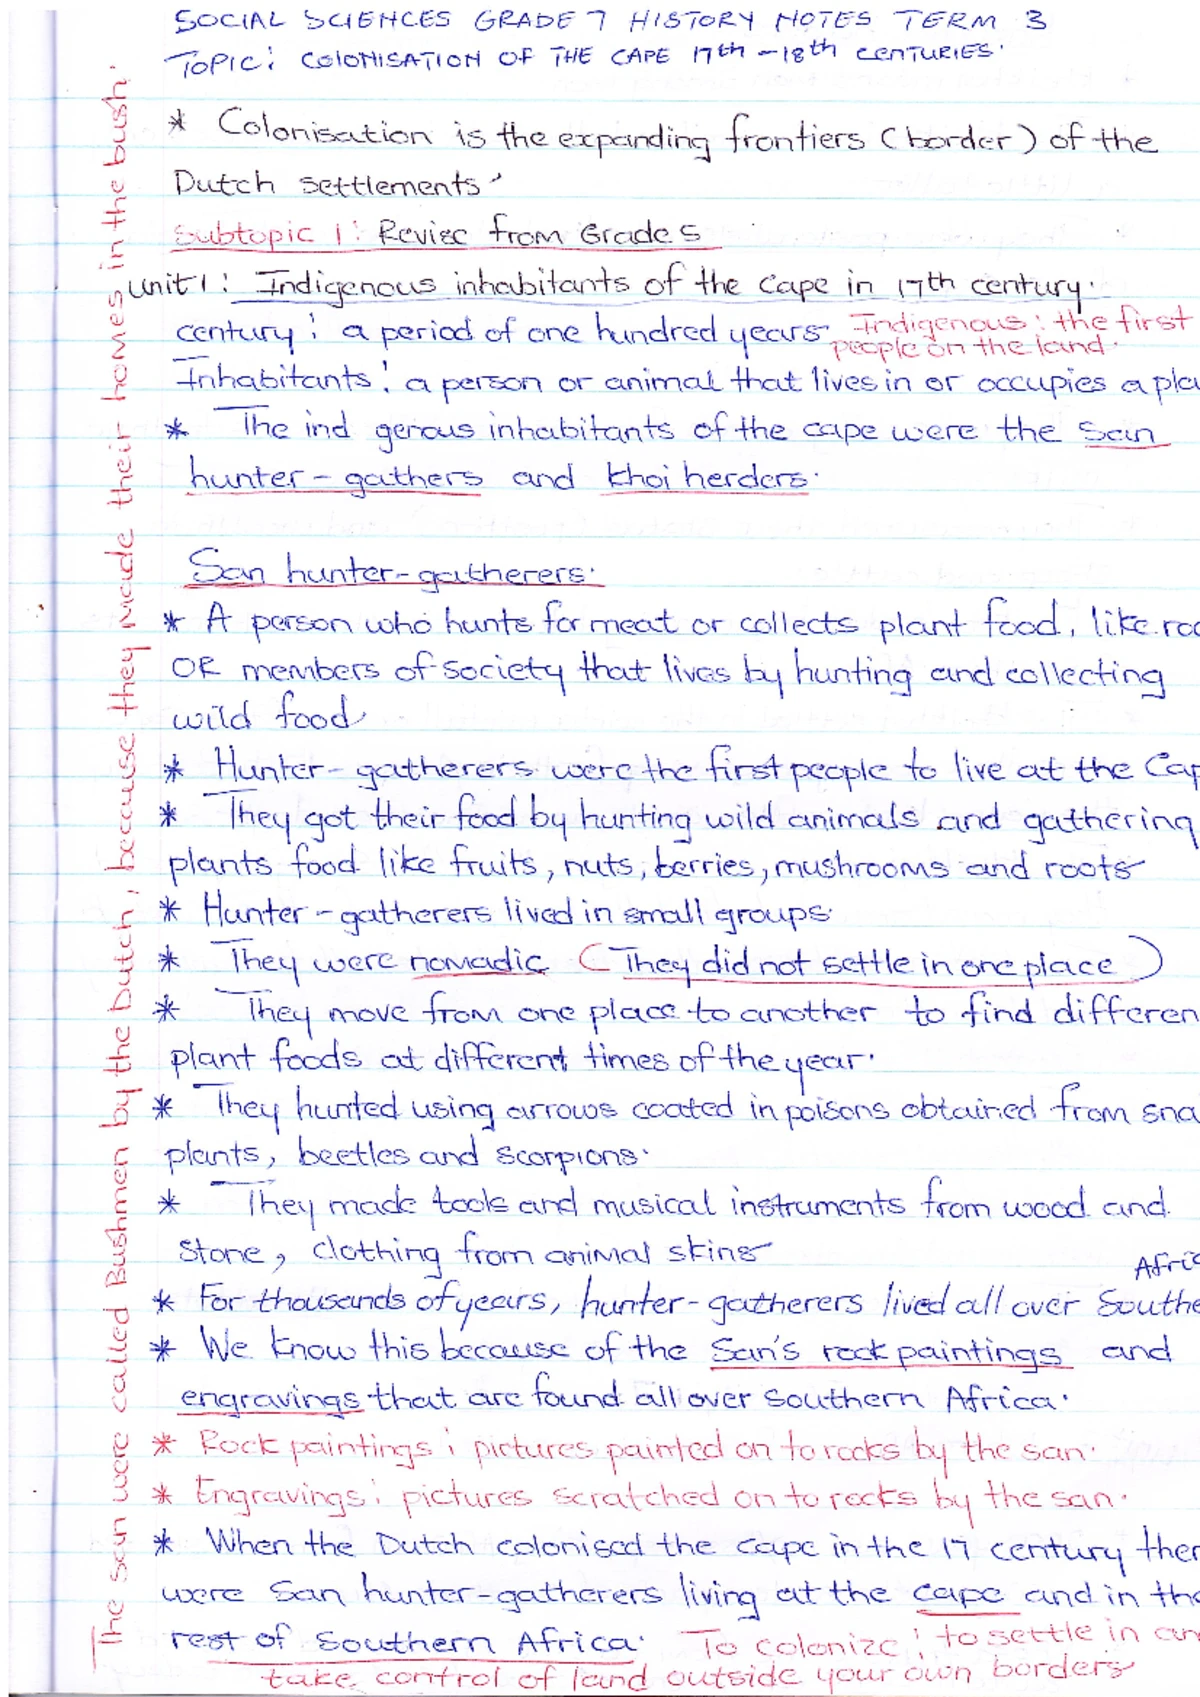 SOCIAL SCIENCES GRADE 7 HISTORY NOTES TERM 3
TOPIC: COLONISATION OF THE CAPE 17th -18th CENTURIES.
* Colonisation is the expanding frontiers (border) of the
Dutch settlements
Subtopic 1: Revise from Grade 5
unit 1: Indigenous inhabitants of the Cape in 17th century.
century: a period of one hundred years. Indigenous: the first
people on the land.
Inhabitants: a person or animal that lives in or occupies a pla
* The ind genous inhabitants of the cape were the San
hunter-gathers and Khoi herders.
San hunter-gatherers.
* A person who hunts for meat or collects plant food, like roo
OR members of society that lives by hunting and collecting
wild food
* Hunter-gatherers were the first people to live at the Cap
* They got their food by hunting wild animals and gathering
plants food like fruits, nuts, berries, mushrooms and roots
* Hunter-gatherers lived in small groups
* They were nomadic (They did not settle in one place)
* They move from one place to another to find differen
plant foods at different times of the year.
* They hunted using arrows coated in poisons obtained from sna
plants, beetles and scorpions.
* They made tools and musical instruments from wood and
stone, clothing from animal skins
Afric
* For thousands of years, hunter-gatherers lived all over Southe
* We know this because of the San's rock paintings and
engravings that are found all over southern Africa.
* Rock paintings: pictures painted on to rocks by the san.
* Engravings: pictures scratched on to rocks by the san.
* When the Dutch colonised the cape in the 17 century ther
were San hunter-gatherers living at the cape and in the
rest of Southern Africa. To colonize: to settle in an
take control of land outside your own borders
The san were called Bushmen by the Dutch, because they made their homes in the bush.